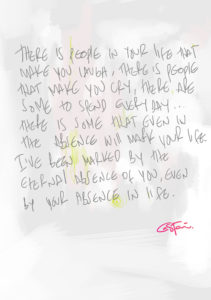 THERE IS PEOPLE IN YOUR LIFE THAT
MAKE YOU LAUGH, THERE IS PEOPLE
THAT MAKE YOU CRY, THERE ARE
SOME TO SPEND EVERY DAY...
THERE IS SOME THAT EVEN IN
THE ABSENCE WILL MARK YOUR LIFE
I'VE BEEN MARKED BY THE
ETERNAL ABSENCE OF YOU, EVEN
BY YOUR ABSENCE IN LIFE.